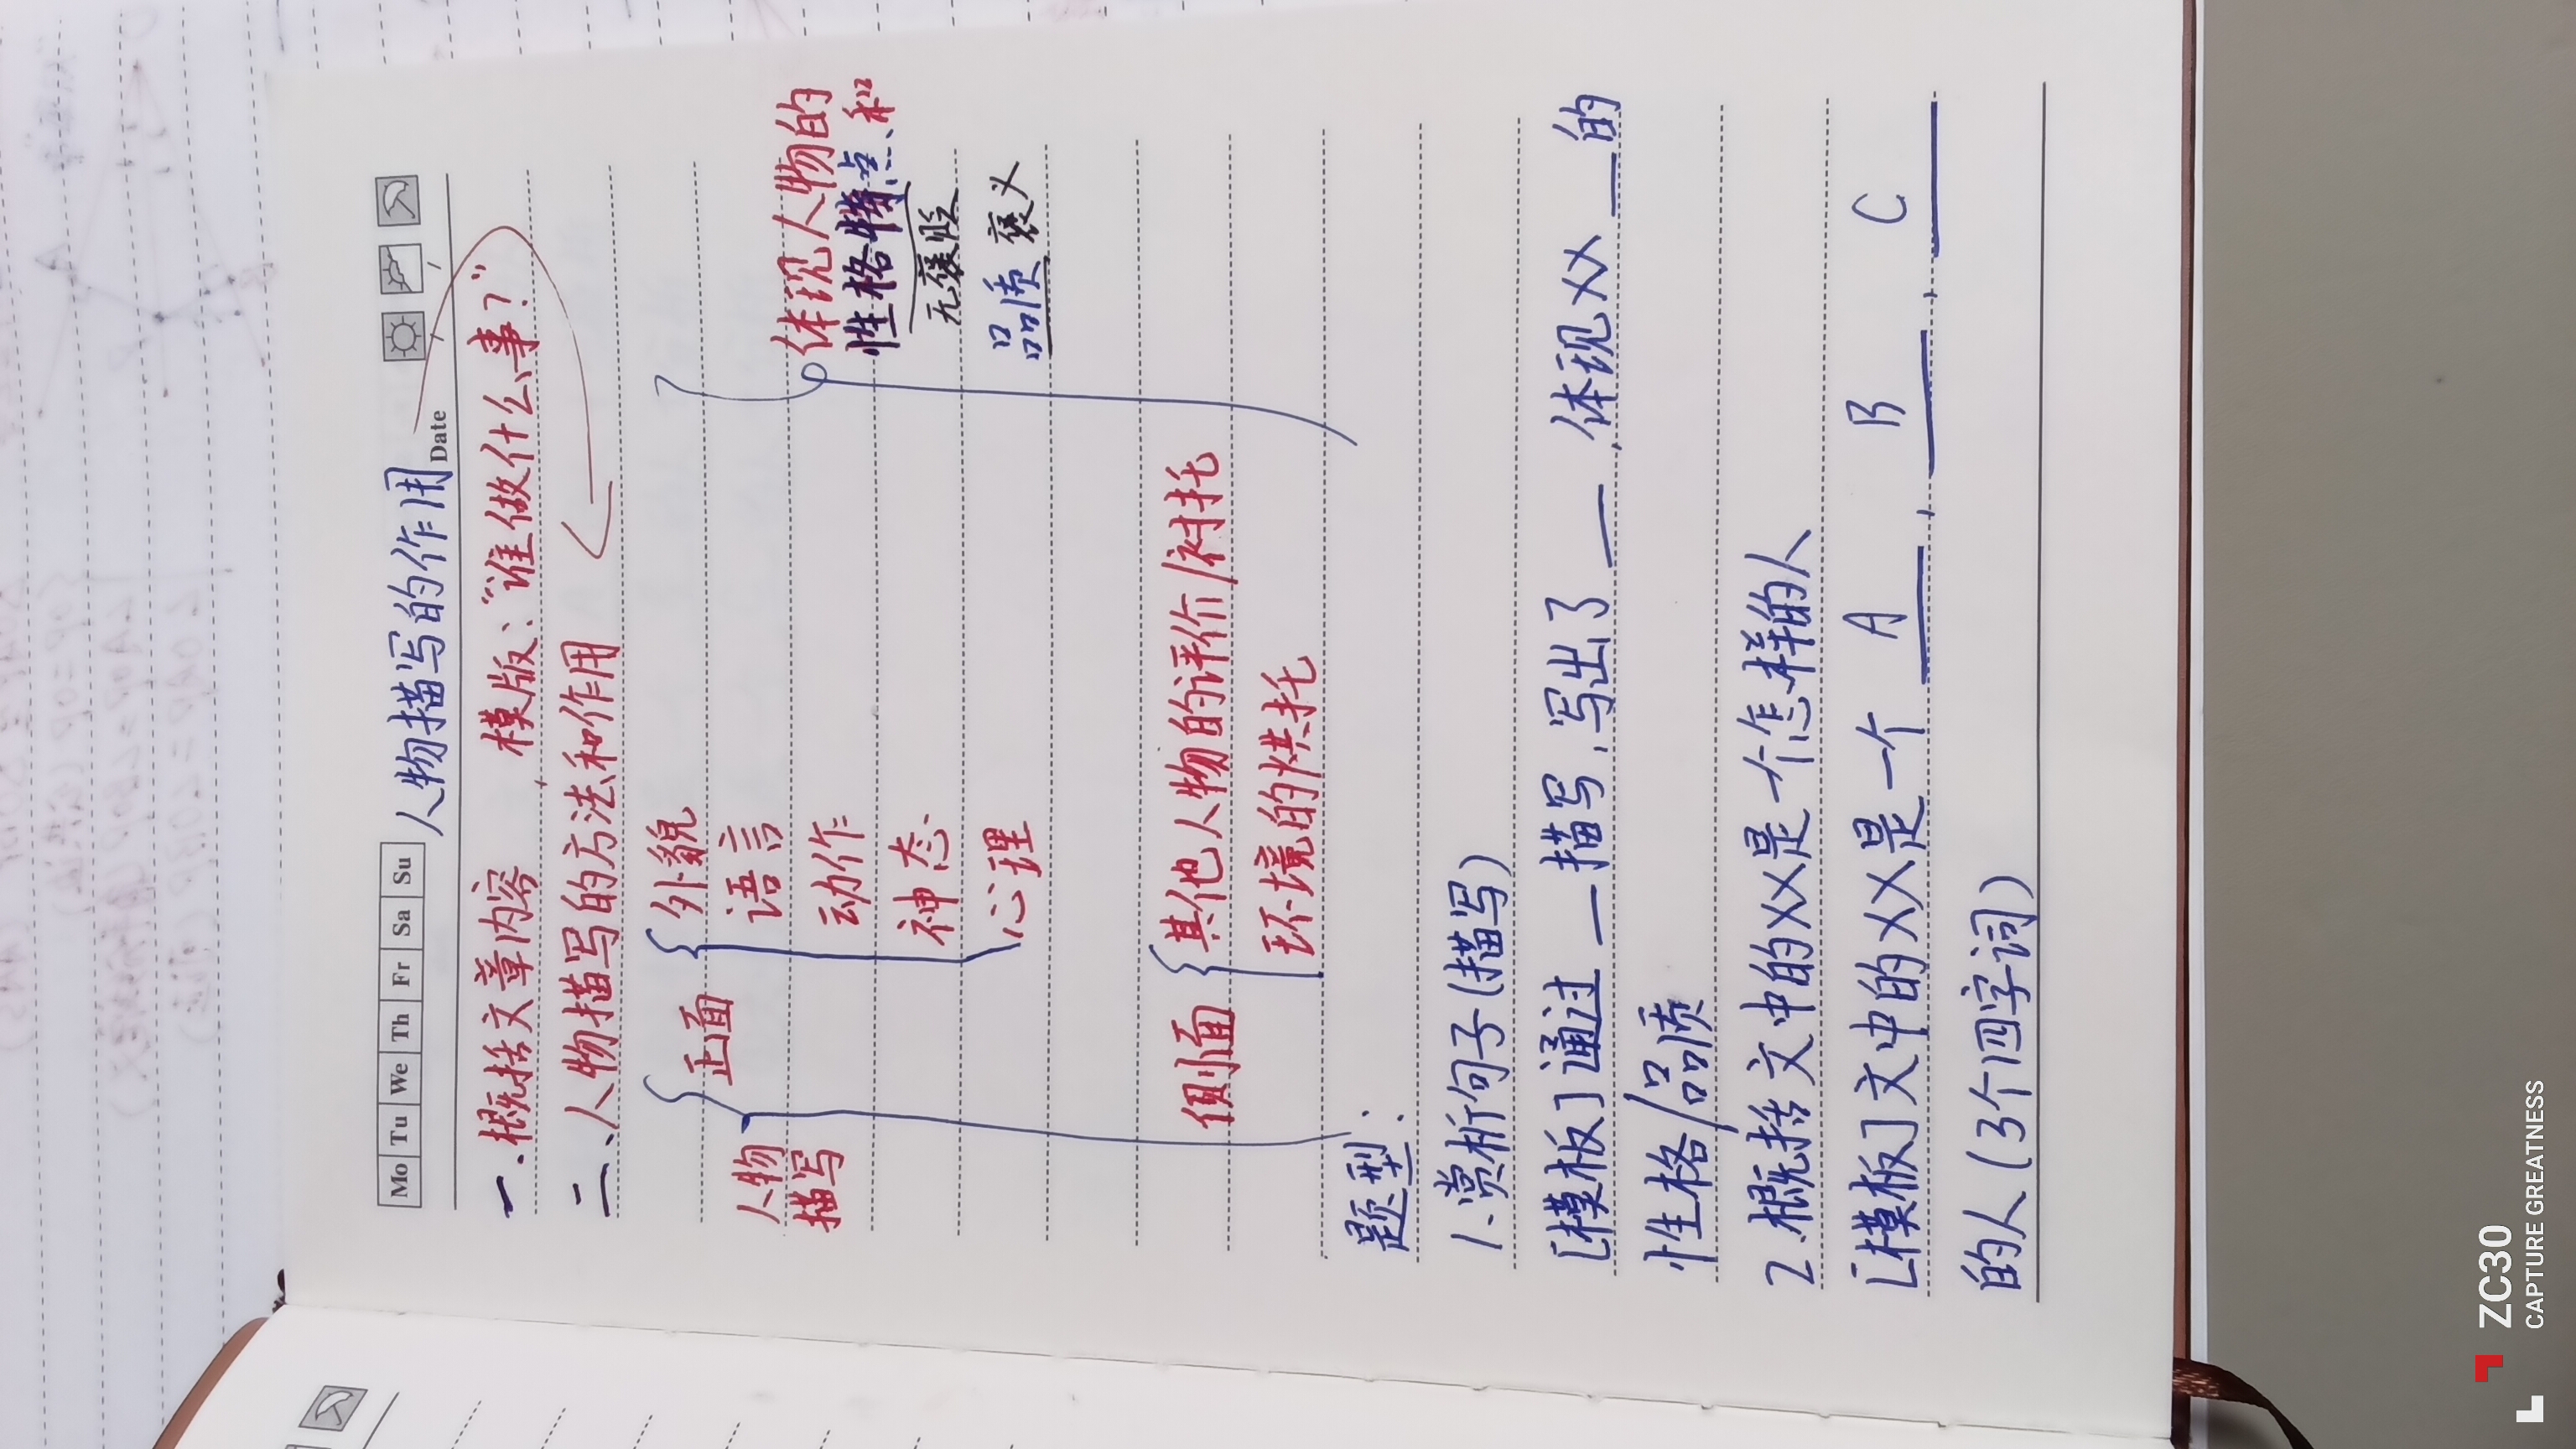 Mo Tu We Th Fr Sa Su
人物描写的作用
Date
一.概括文章内容，模版：“谁做什么事？”
二、人物描写的方法和作用
人物
描写
正面
外貌
语言
动作
神态
心理
侧面
其他人物的评价/衬托
环境的烘托
体现人物的
性格特点和
无褒贬
品质 褒义
题型：
1、赏析句子(描写)
[模板]通过__描写,写出了__,体现XX__的
性格/品质
2.概括文中的XX是一个怎样的人
[模板]文中的XX是一个 A , B , C
的人(3个四字词)
ZC30
CAPTURE GREATNESS